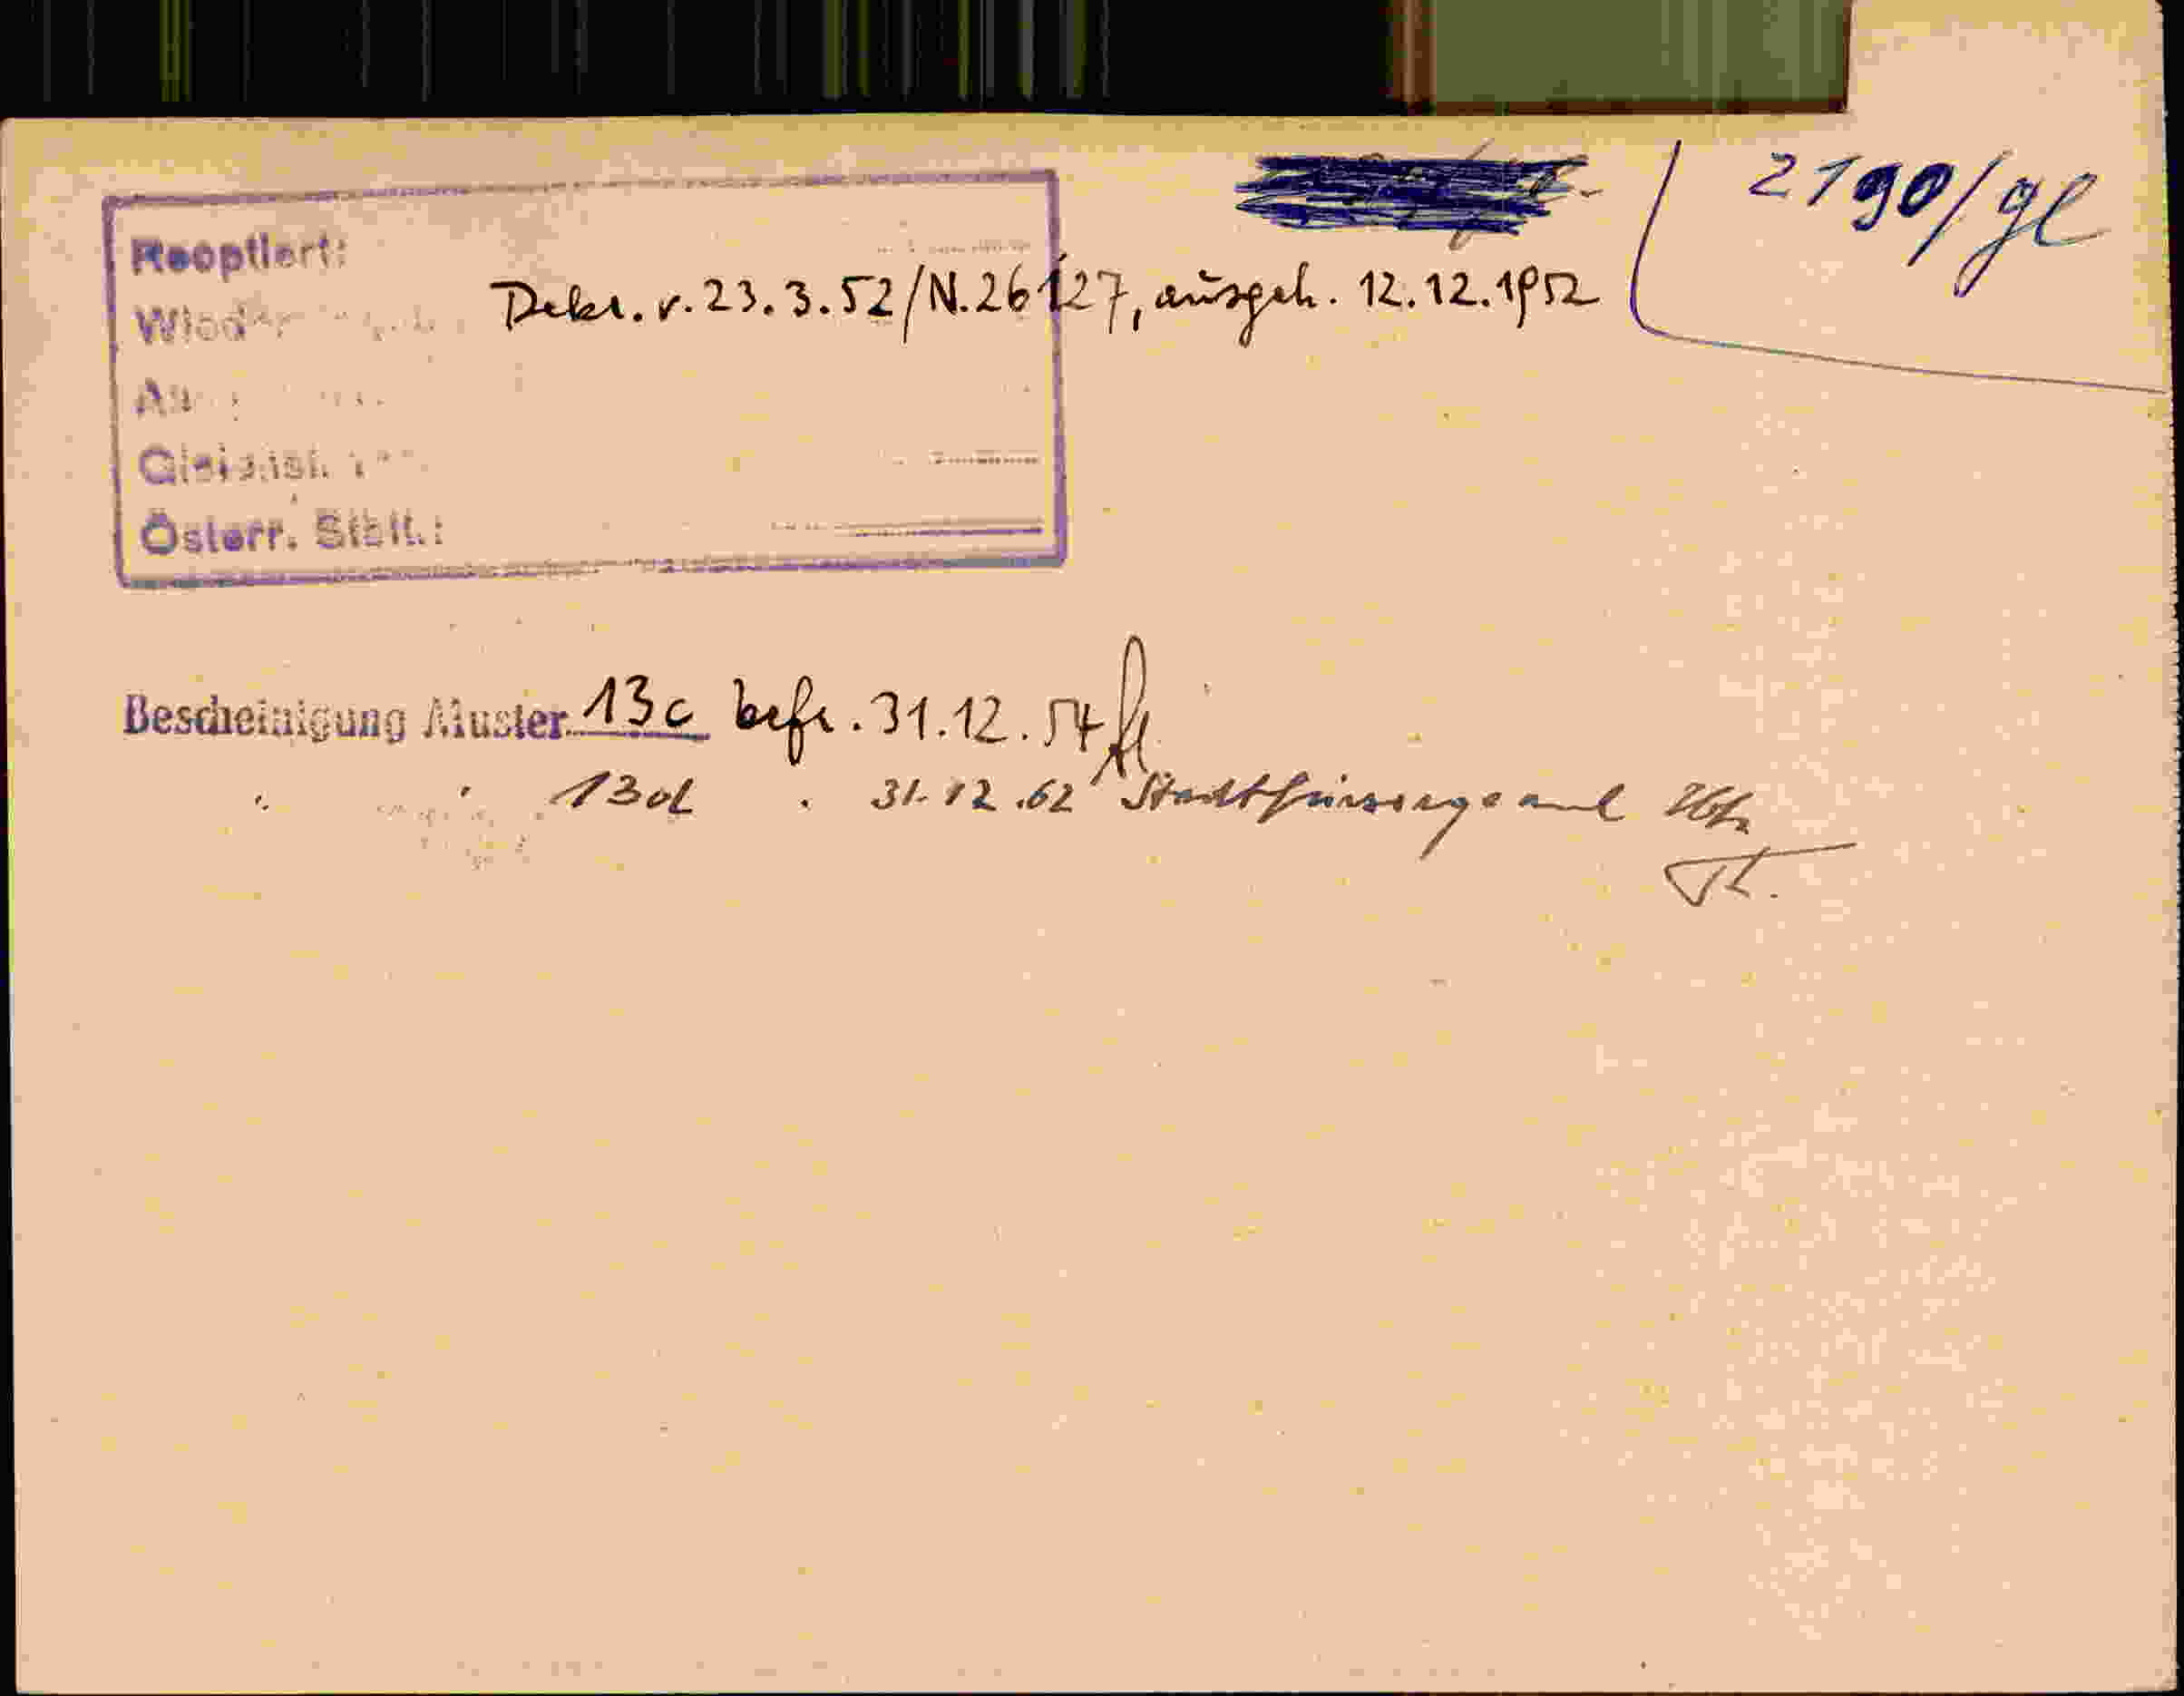 2190/gl
Reoptiert:
Dekr. v. 23.3.52/N.26127, ausgeh. 12.12.1952
Österr. Stblt.:
Bescheinigung Muster 13c befr. 31.12.54
" " 13d " 31.12.62 Stadtfürsorgeamt